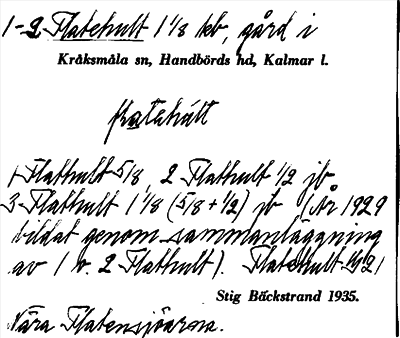 1-2 Flatehult 1 1/8 kb, gård i
Kråksmåla sn, Handbörds hd, Kalmar l.
flatehült
1 Flathult 5/8, 2 Flathult 1/2 jb
3 Flathult 1 1/8 (5/8 + 1/2) jb (År 1929
bildat genom sammanläggning
av 1 o. 2 Flathult). Flatehult
Stig Bäckstrand 1935.
Nära Flatensjöarna.